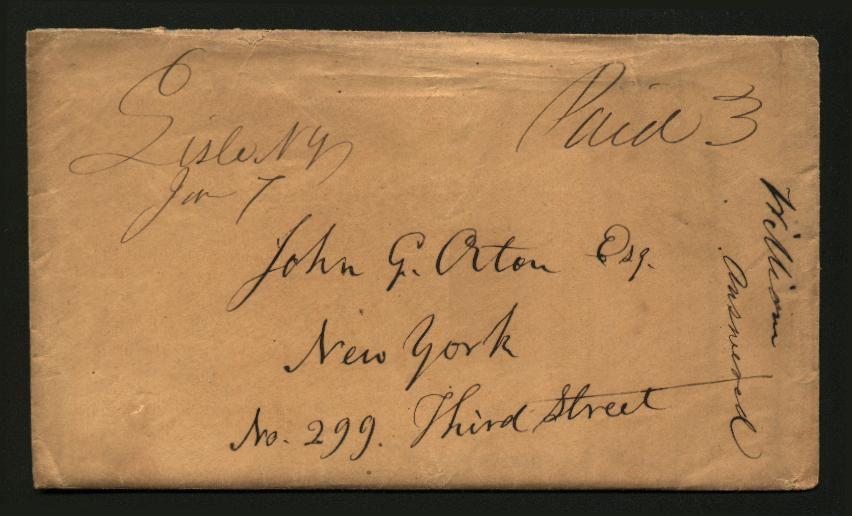 Lisle NY
Jan 7
Paid 3
John G. Orton Esq.
New York
No. 299. Third Street
William
Answered